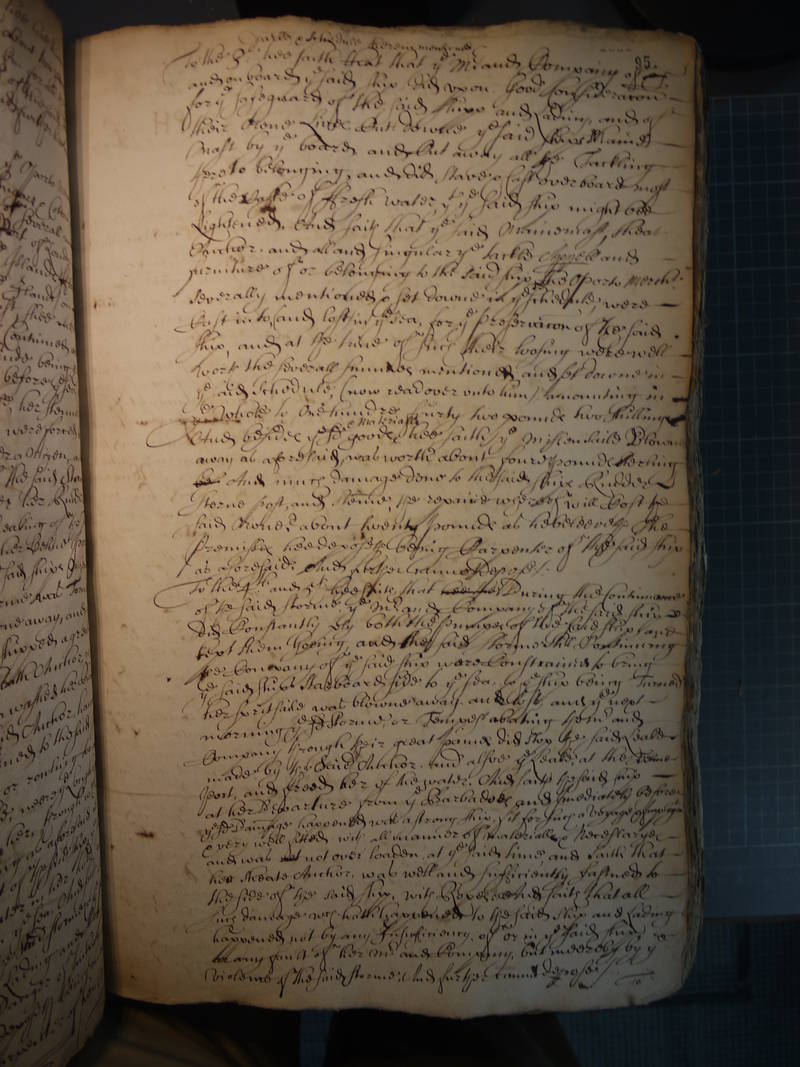 95
To the 3d. hee saith that ye Mr and Company of
and on board ye said ship did upon good consideracon
for ye safeguard of the said shipp and lading, and of
their owne lives Cut downe ye said shipps Maine
Mast by ye board, and cut away all the Tackling
thereto belonging, and did stave & cast overboard most
of the Caske of ffresh water, yt ye said ship might bee
Lightened, And saith that ye said Mainemast, Sheat
Anchor, and all and singular ye tackle Apparell and
furniture of or belonging to the said ship, the Oporto Merchant
severally mentioned & set downe in ye schedule, were
Cast into, and lost in ye sea, for ye preservacon of the said
ship, and at the time of such their loosing were well
worth the severall summes mentioned and set downe in
ye said Schedule, (now read over unto him) amounting in
ye whole to One hundred fourty two pounds two shillings
And besides ye sd goods & Materialls hee saith ye Missen saile blowne
away as aforesaid, was worth about foure pounds sterling
And much damage done to the said ships Rudder
Sterne post, and Stemme, the repaire whereof will Cost the
said Owners about twenty pounds as he beleeveth The
Premisses hee deposeth being Carpenter of the said ship
as aforesaid. And further cannot depose.
To the 4th and 5t. hee saith that During the continuance
of the said storme ye Mr and Company of the said ship
did Constantly ply both the pumpes of the said ship and
kept them goeing, and the said storme still Continuing
the Company of ye said ship were Constrained to bring
ye said ships Starboard side to ye sea, & ye ship being Turned
her spritsaile was blowne away and lost, and ye next
morning ye sd storme or Tempest abating the Mr and
Company through their great paines did stop the said leake
made by the said Anchor, and alsoe ye leake at the Sterne
Post, and freed her of the water. And saith the said ship
at her departure from ye Barbadoes and Imediately before
ye sd Damage happened was a strong ship, fit for such a voyage
& very well fitted with all manner of materialls & Necessaryes
and was not over loaden at ye said time and saith that
her Sheate Anchor was well and sufficiently fastned to
the side of the said ship, with Ropes And saith that all
such damage wch hath happened to the said ship and lading
happened not by any Insufficiency of or in ye said ship,
or any fault of her Mr and Company, but meerely by ye
violence of the said storme, And further cannot depose.